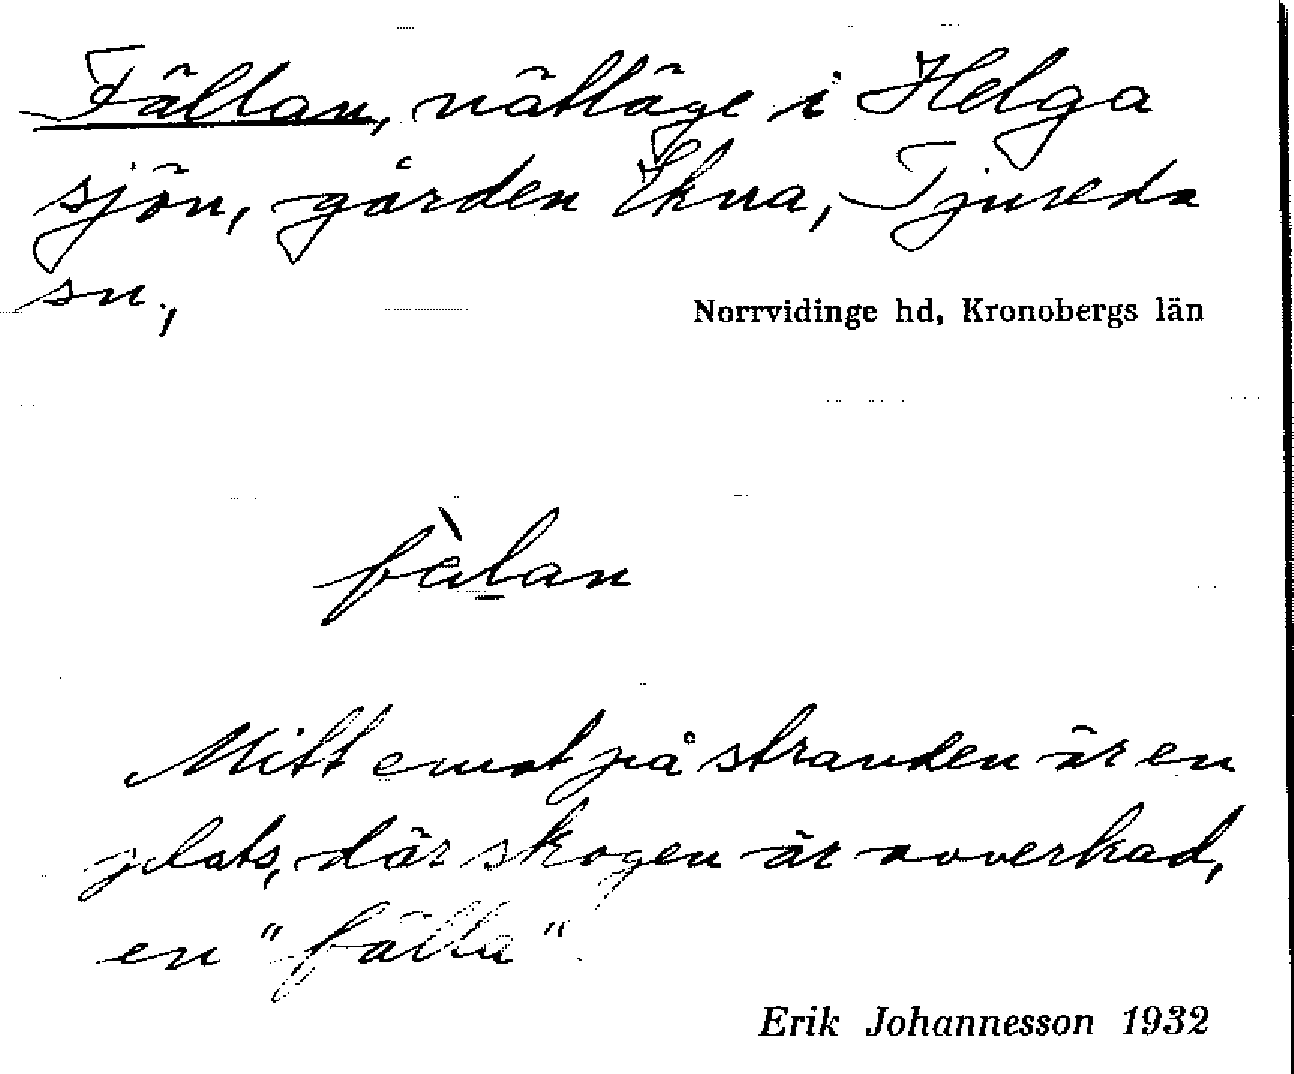 Fällan, nätläge i Helga
sjön, gården Ekna, Tjureda
sn.,
Norrvidinge hd, Kronobergs län
Mitt emot på stranden är en
plats, där skogen är avverkad,
en "fälla".
Erik Johannesson 1932